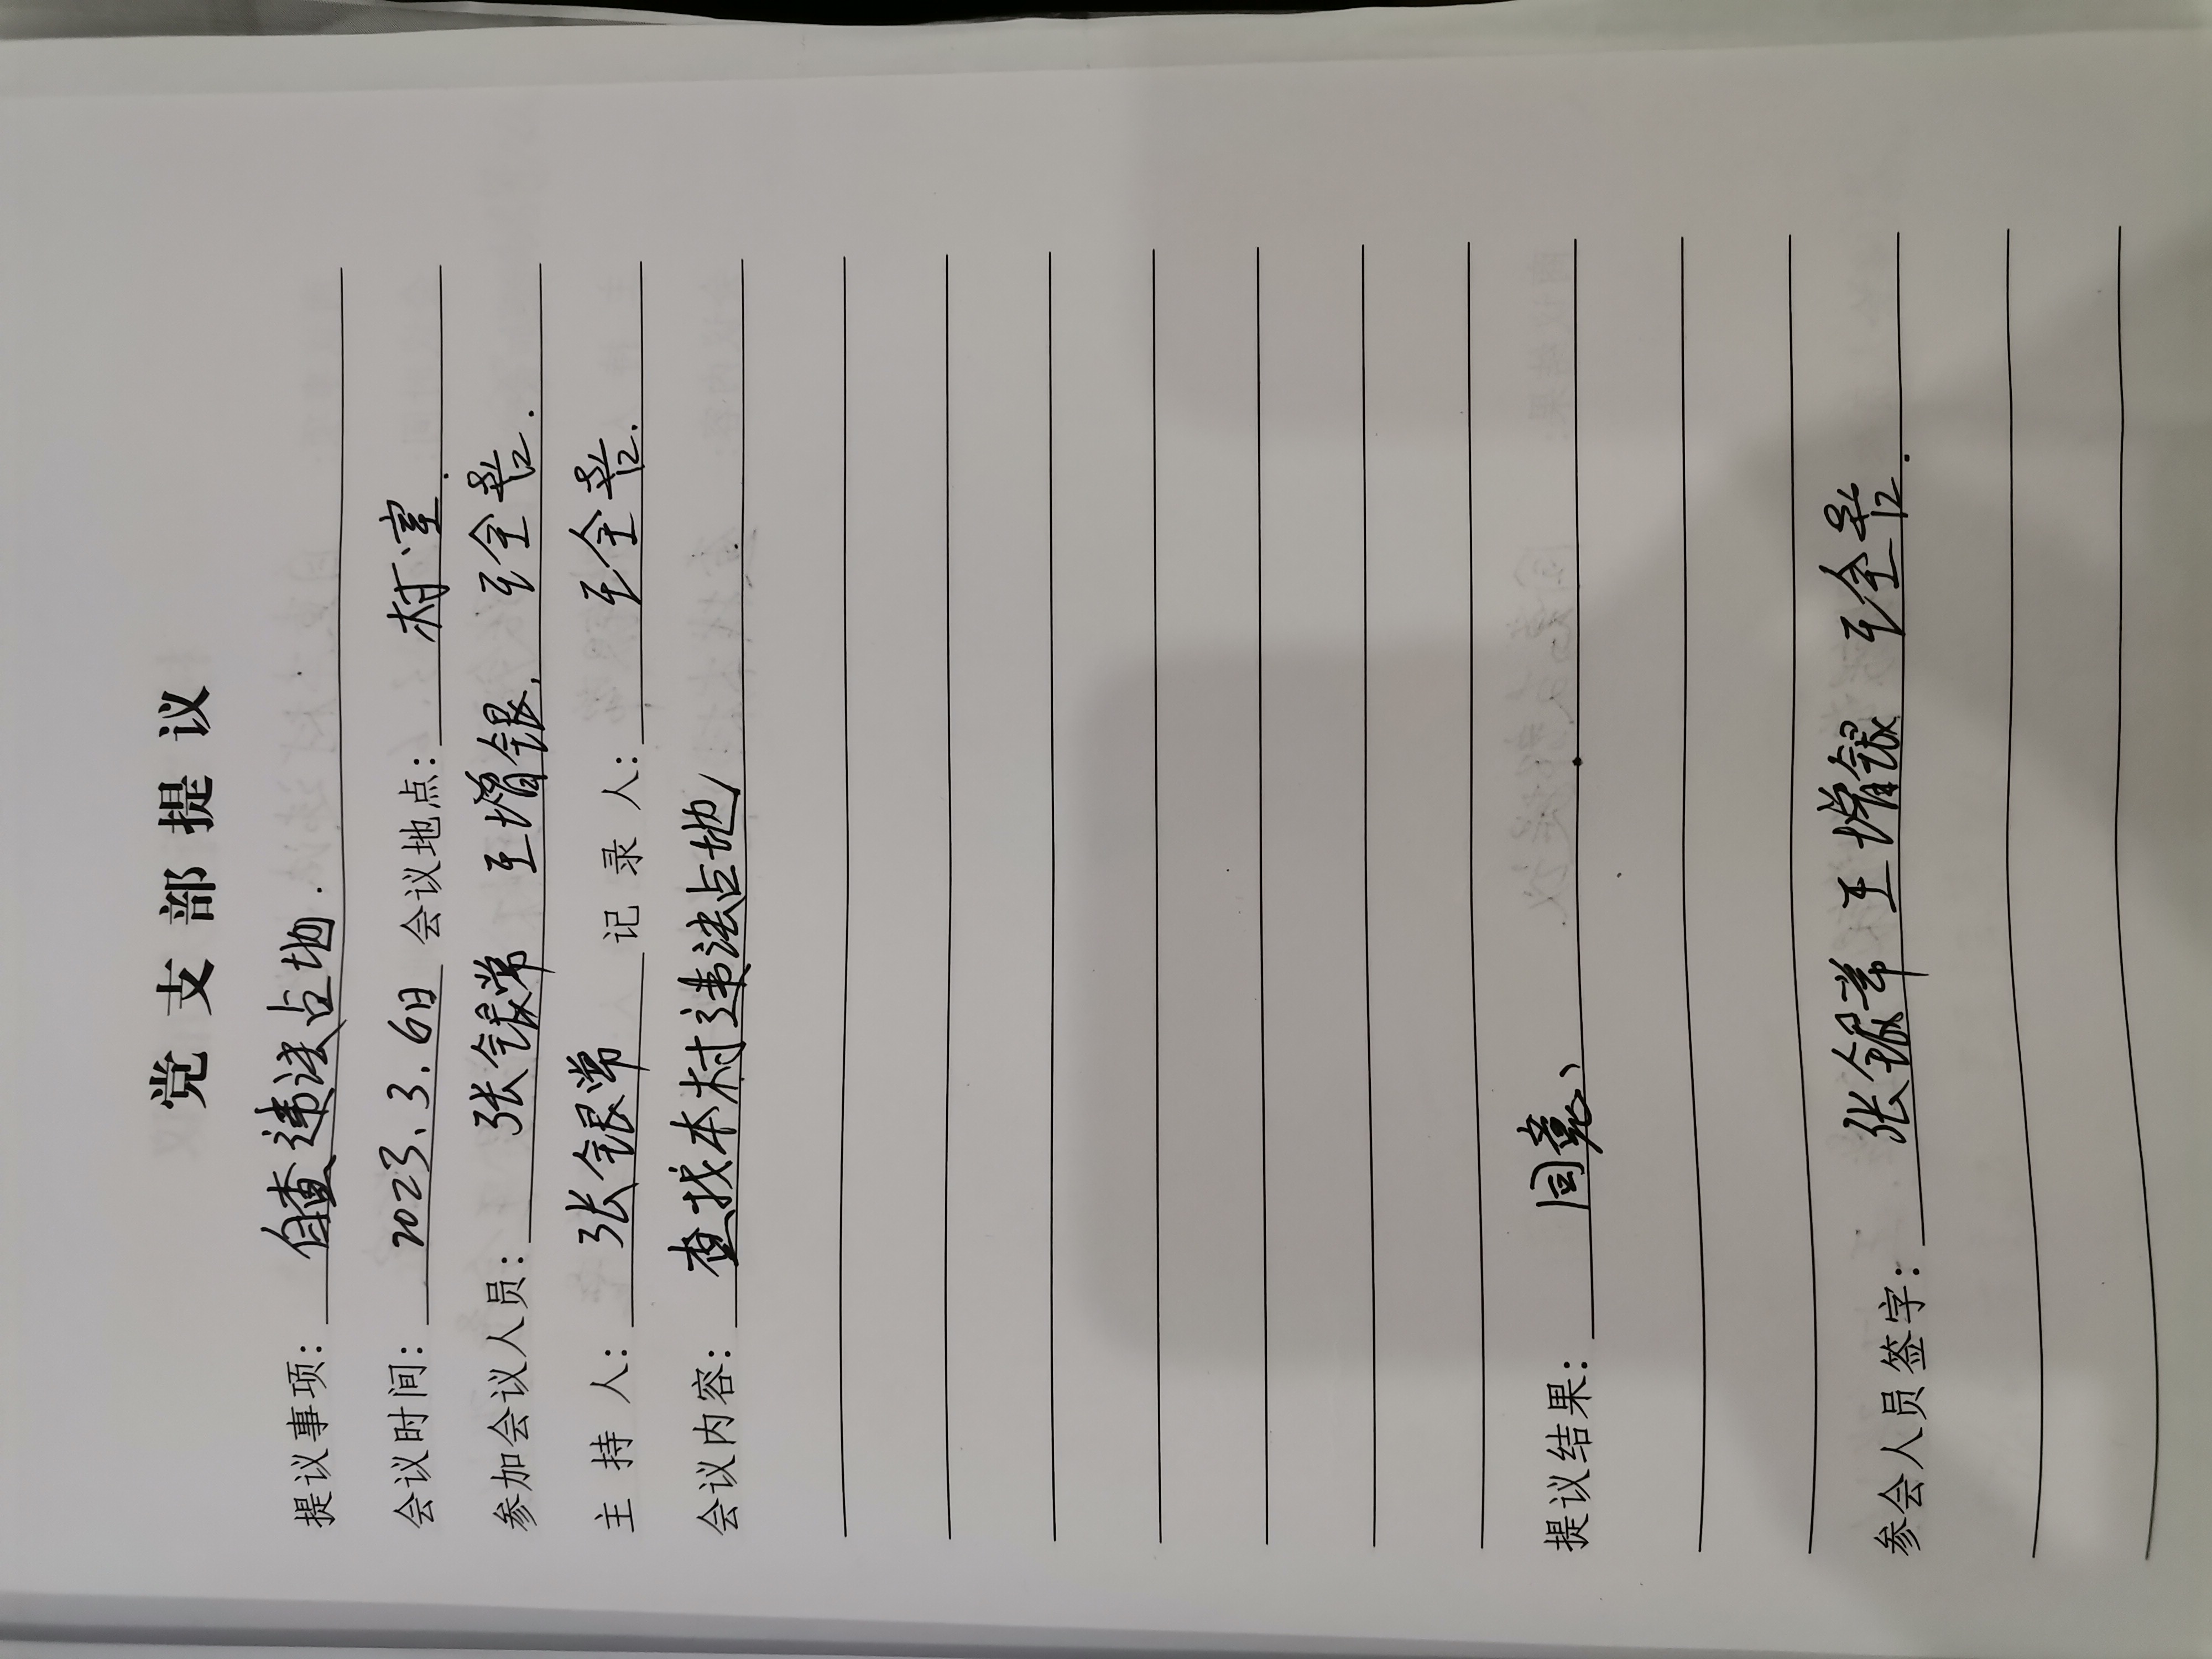 党支部提议
提议事项: 自查违法占地.
会议时间: 2023.3.6日 会议地点: 村室.
参加会议人员: 张银常 王增银. 王全
主持人: 张银常 记录人: 王全
会议内容: 查找本村违法占地
提议结果: 同意、
参会人员签字: 张银常 王增银 王全